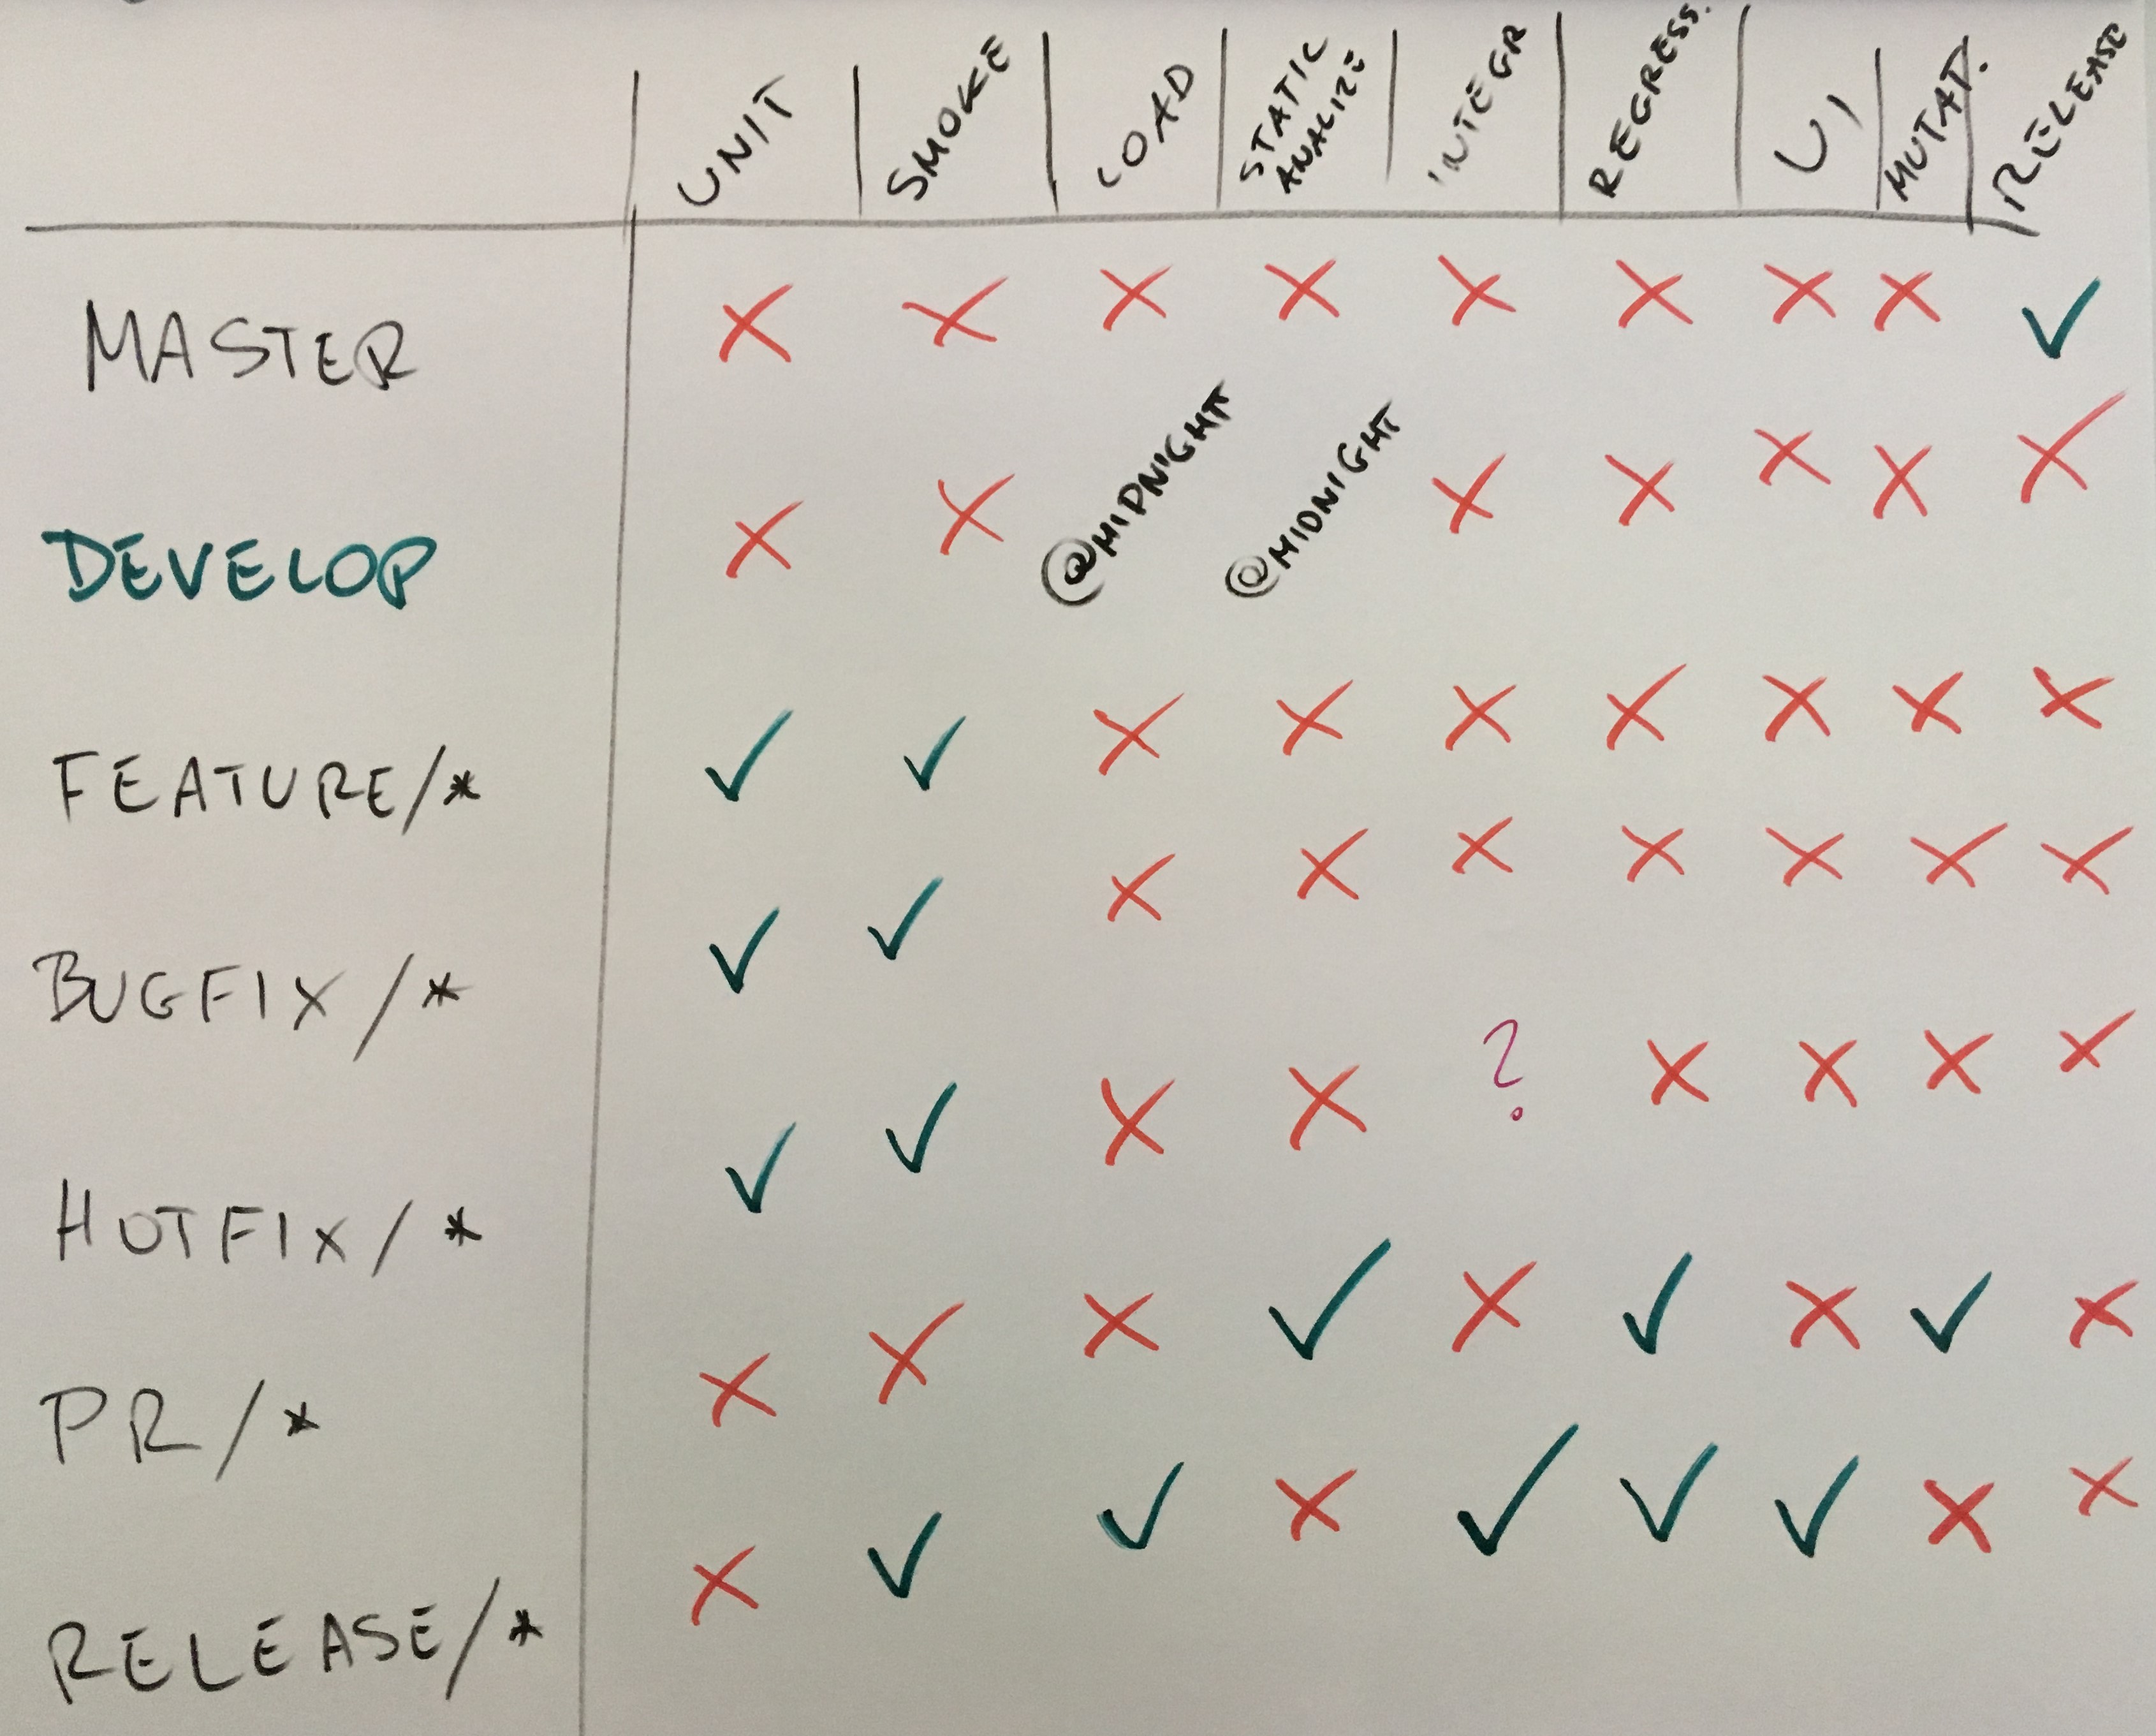 UNIT SMOKE LOAD STATIC ANALIZE INTEGR REGRESS. UI MUTAT. RELEASE
MASTER ✗ ✗ ✗ ✗ ✗ ✗ ✗ ✗ ✓
DEVELOP ✗ ✗ @MIDNIGHT @MIDNIGHT ✗ ✗ ✗ ✗ ✗
FEATURE/* ✓ ✓ ✗ ✗ ✗ ✗ ✗ ✗ ✗
BUGFIX/* ✓ ✓ ✗ ✗ ✗ ✗ ✗ ✗ ✗
HOTFIX/* ✓ ✓ ✗ ✗ ? ✗ ✗ ✗ ✗
PR/* ✗ ✗ ✗ ✓ ✗ ✓ ✗ ✓ ✗
RELEASE/* ✗ ✓ ✓ ✗ ✓ ✓ ✓ ✗ ✗